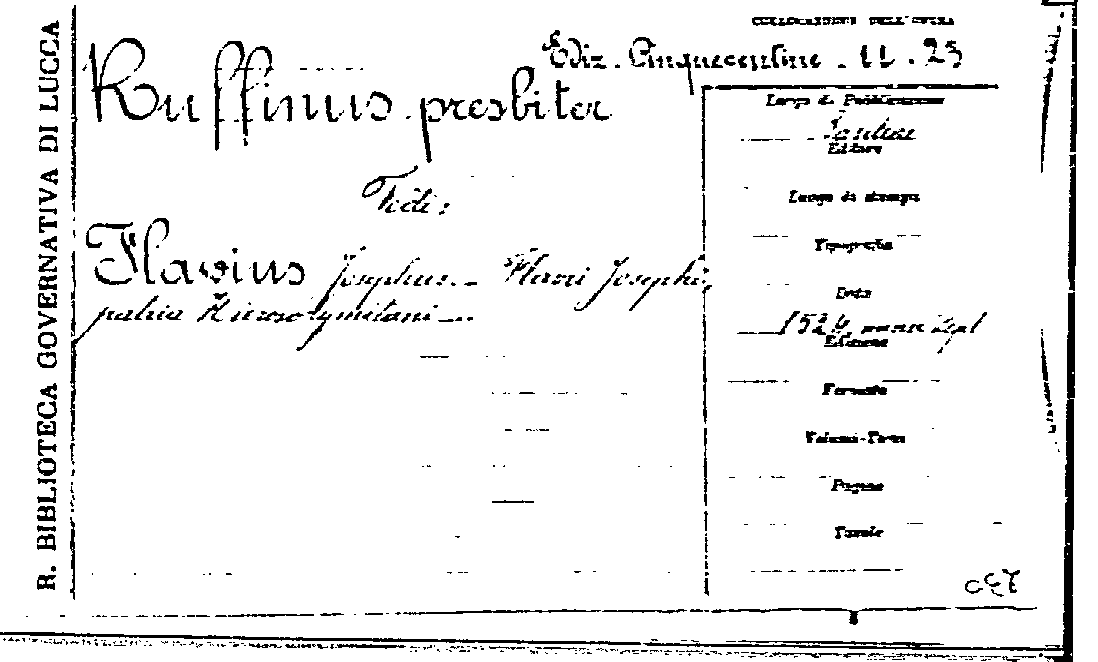 R. BIBLIOTECA GOVERNATIVA DI LUCCA
COLLOCAZIONE DELL'OPERA
Ediz. Cinquecentine - 11 . 23
Ruffinus presbiter
Vedi:
Flavius Josephus.- Flavii Josephi
patria Hierosolymitani -
Luogo di Pubblicazione
Editore
Luogo di stampa
Tipografia
Data
1524
Edizione
Formato
Volumi-Tomi
Pagine
Tavole